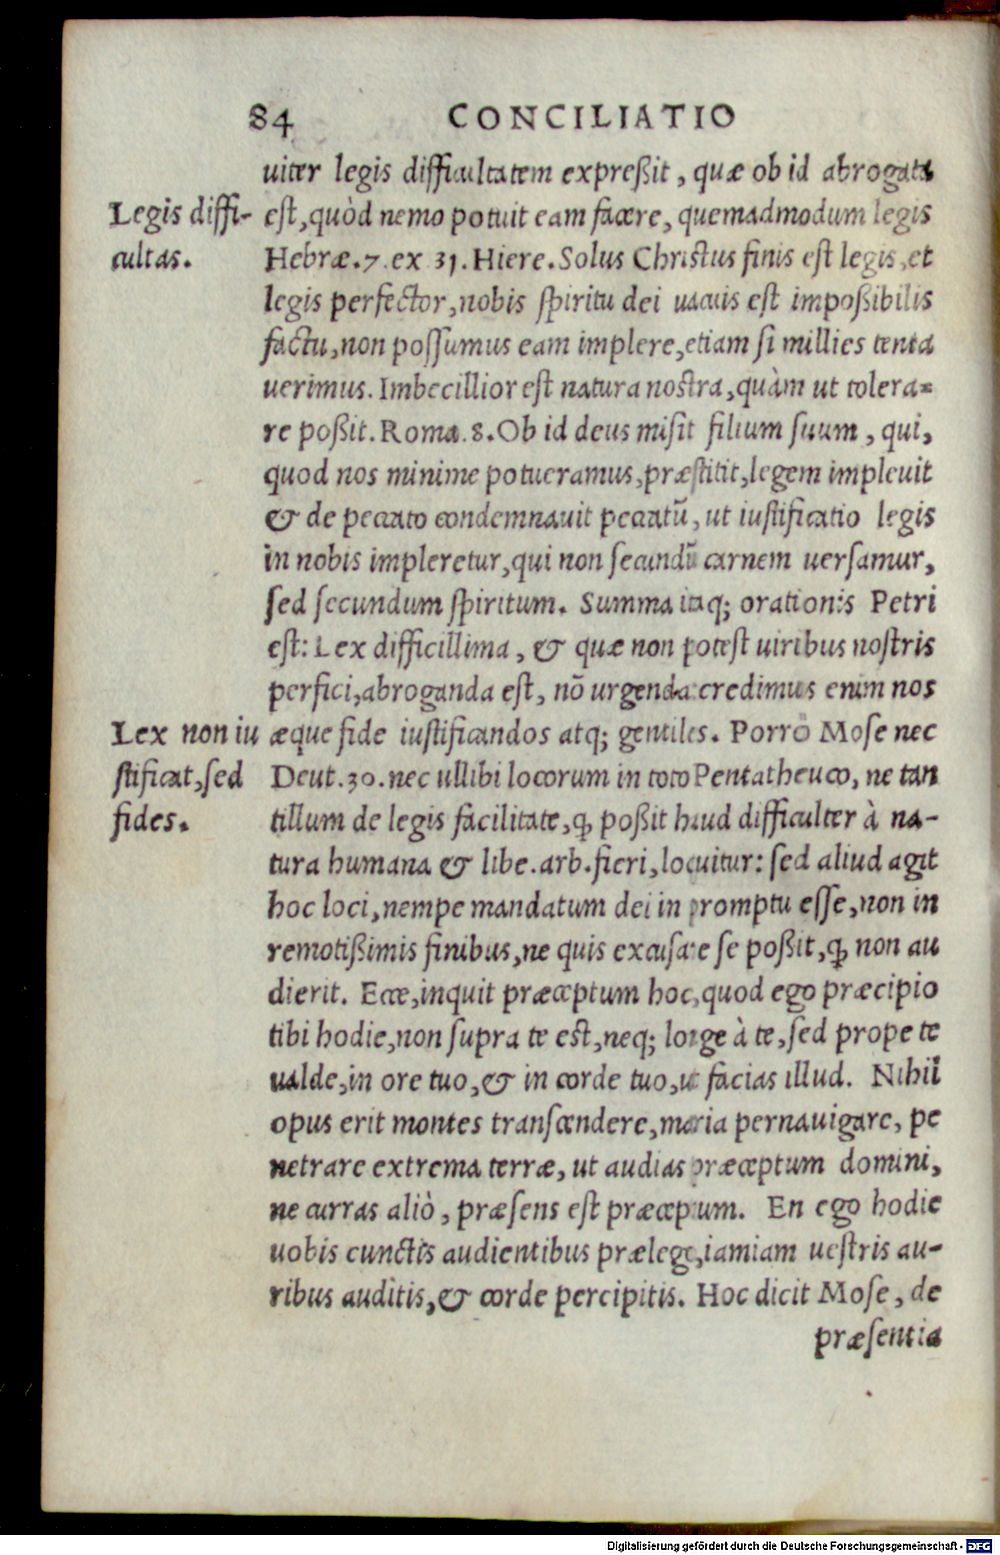 84 CONCILIATIO
uiter legis difficultatem expreßit, quæ ob id abrogata
Legis diffi-
cultas.
est, quòd nemo potuit eam facere, quemadmodum legis
Hebræ. 7. ex 31. Hiere. Solus Christus finis est legis, et
legis perfector, nobis spiritu dei uacuis est impoßibilis
factu, non possumus eam implere, etiam si millies tenta
uerimus. Imbecillior est natura nostra, quàm ut tolera=
re poßit. Roma. 8. Ob id deus misit filium suum, qui,
quod nos minime potueramus, præstitit, legem impleuit
& de peccato condemnauit peccatū, ut iustificatio legis
in nobis impleretur, qui non secundū carnem uersamur,
sed secundum spiritum. Summa itaq; orationis Petri
est: Lex difficillima, & quæ non potest uiribus nostris
perfici, abroganda est, nō urgenda: credimus enim nos
Lex non iu
stificat, sed
fides.
æque fide iustificandos atq; gentiles. Porrò Mose nec
Deut. 30. nec ullibi locorum in toto Pentatheuco, ne tan
tillum de legis facilitate, ꝙ poßit haud difficulter à na-
tura humana & libe. arb. fieri, locuitur: sed aliud agit
hoc loci, nempe mandatum dei in promptu esse, non in
remotißimis finibus, ne quis excusare se poßit, ꝙ non au
dierit. Ecce, inquit præceptum hoc, quod ego præcipio
tibi hodie, non supra te est, neq; longe à te, sed prope te
ualde, in ore tuo, & in corde tuo, ut facias illud. Nihil
opus erit montes transcendere, maria pernauigare, pe
netrare extrema terræ, ut audias præceptum domini,
ne curras aliò, præsens est præceptum. En ego hodie
uobis cunctis audientibus prælego, iamiam uestris au-
ribus auditis, & corde percipitis. Hoc dicit Mose, de
præsentia
Digitalisierung gefördert durch die Deutsche Forschungsgemeinschaft - DFG